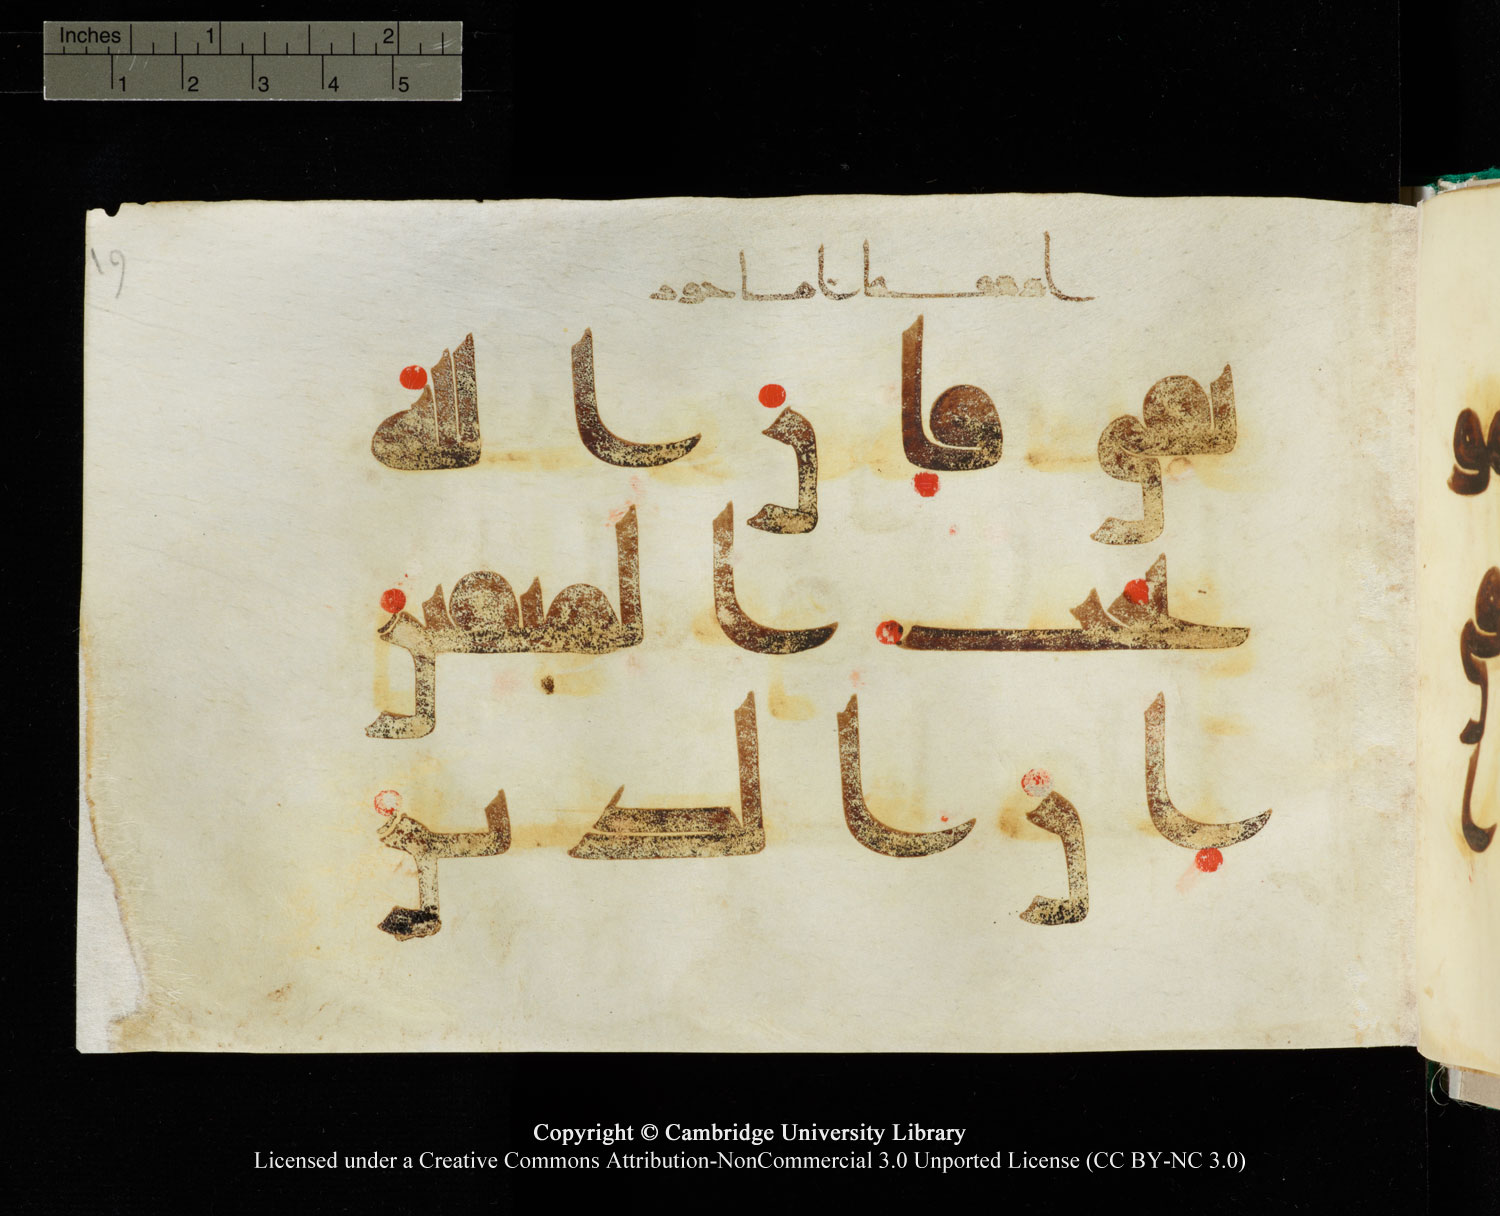 Inches 1 2
1 2 3 4 5
١٩
تقى فان الله
يحب المتقين
ان الذين
Copyright © Cambridge University Library
Licensed under a Creative Commons Attribution-NonCommercial 3.0 Unported License (CC BY-NC 3.0)